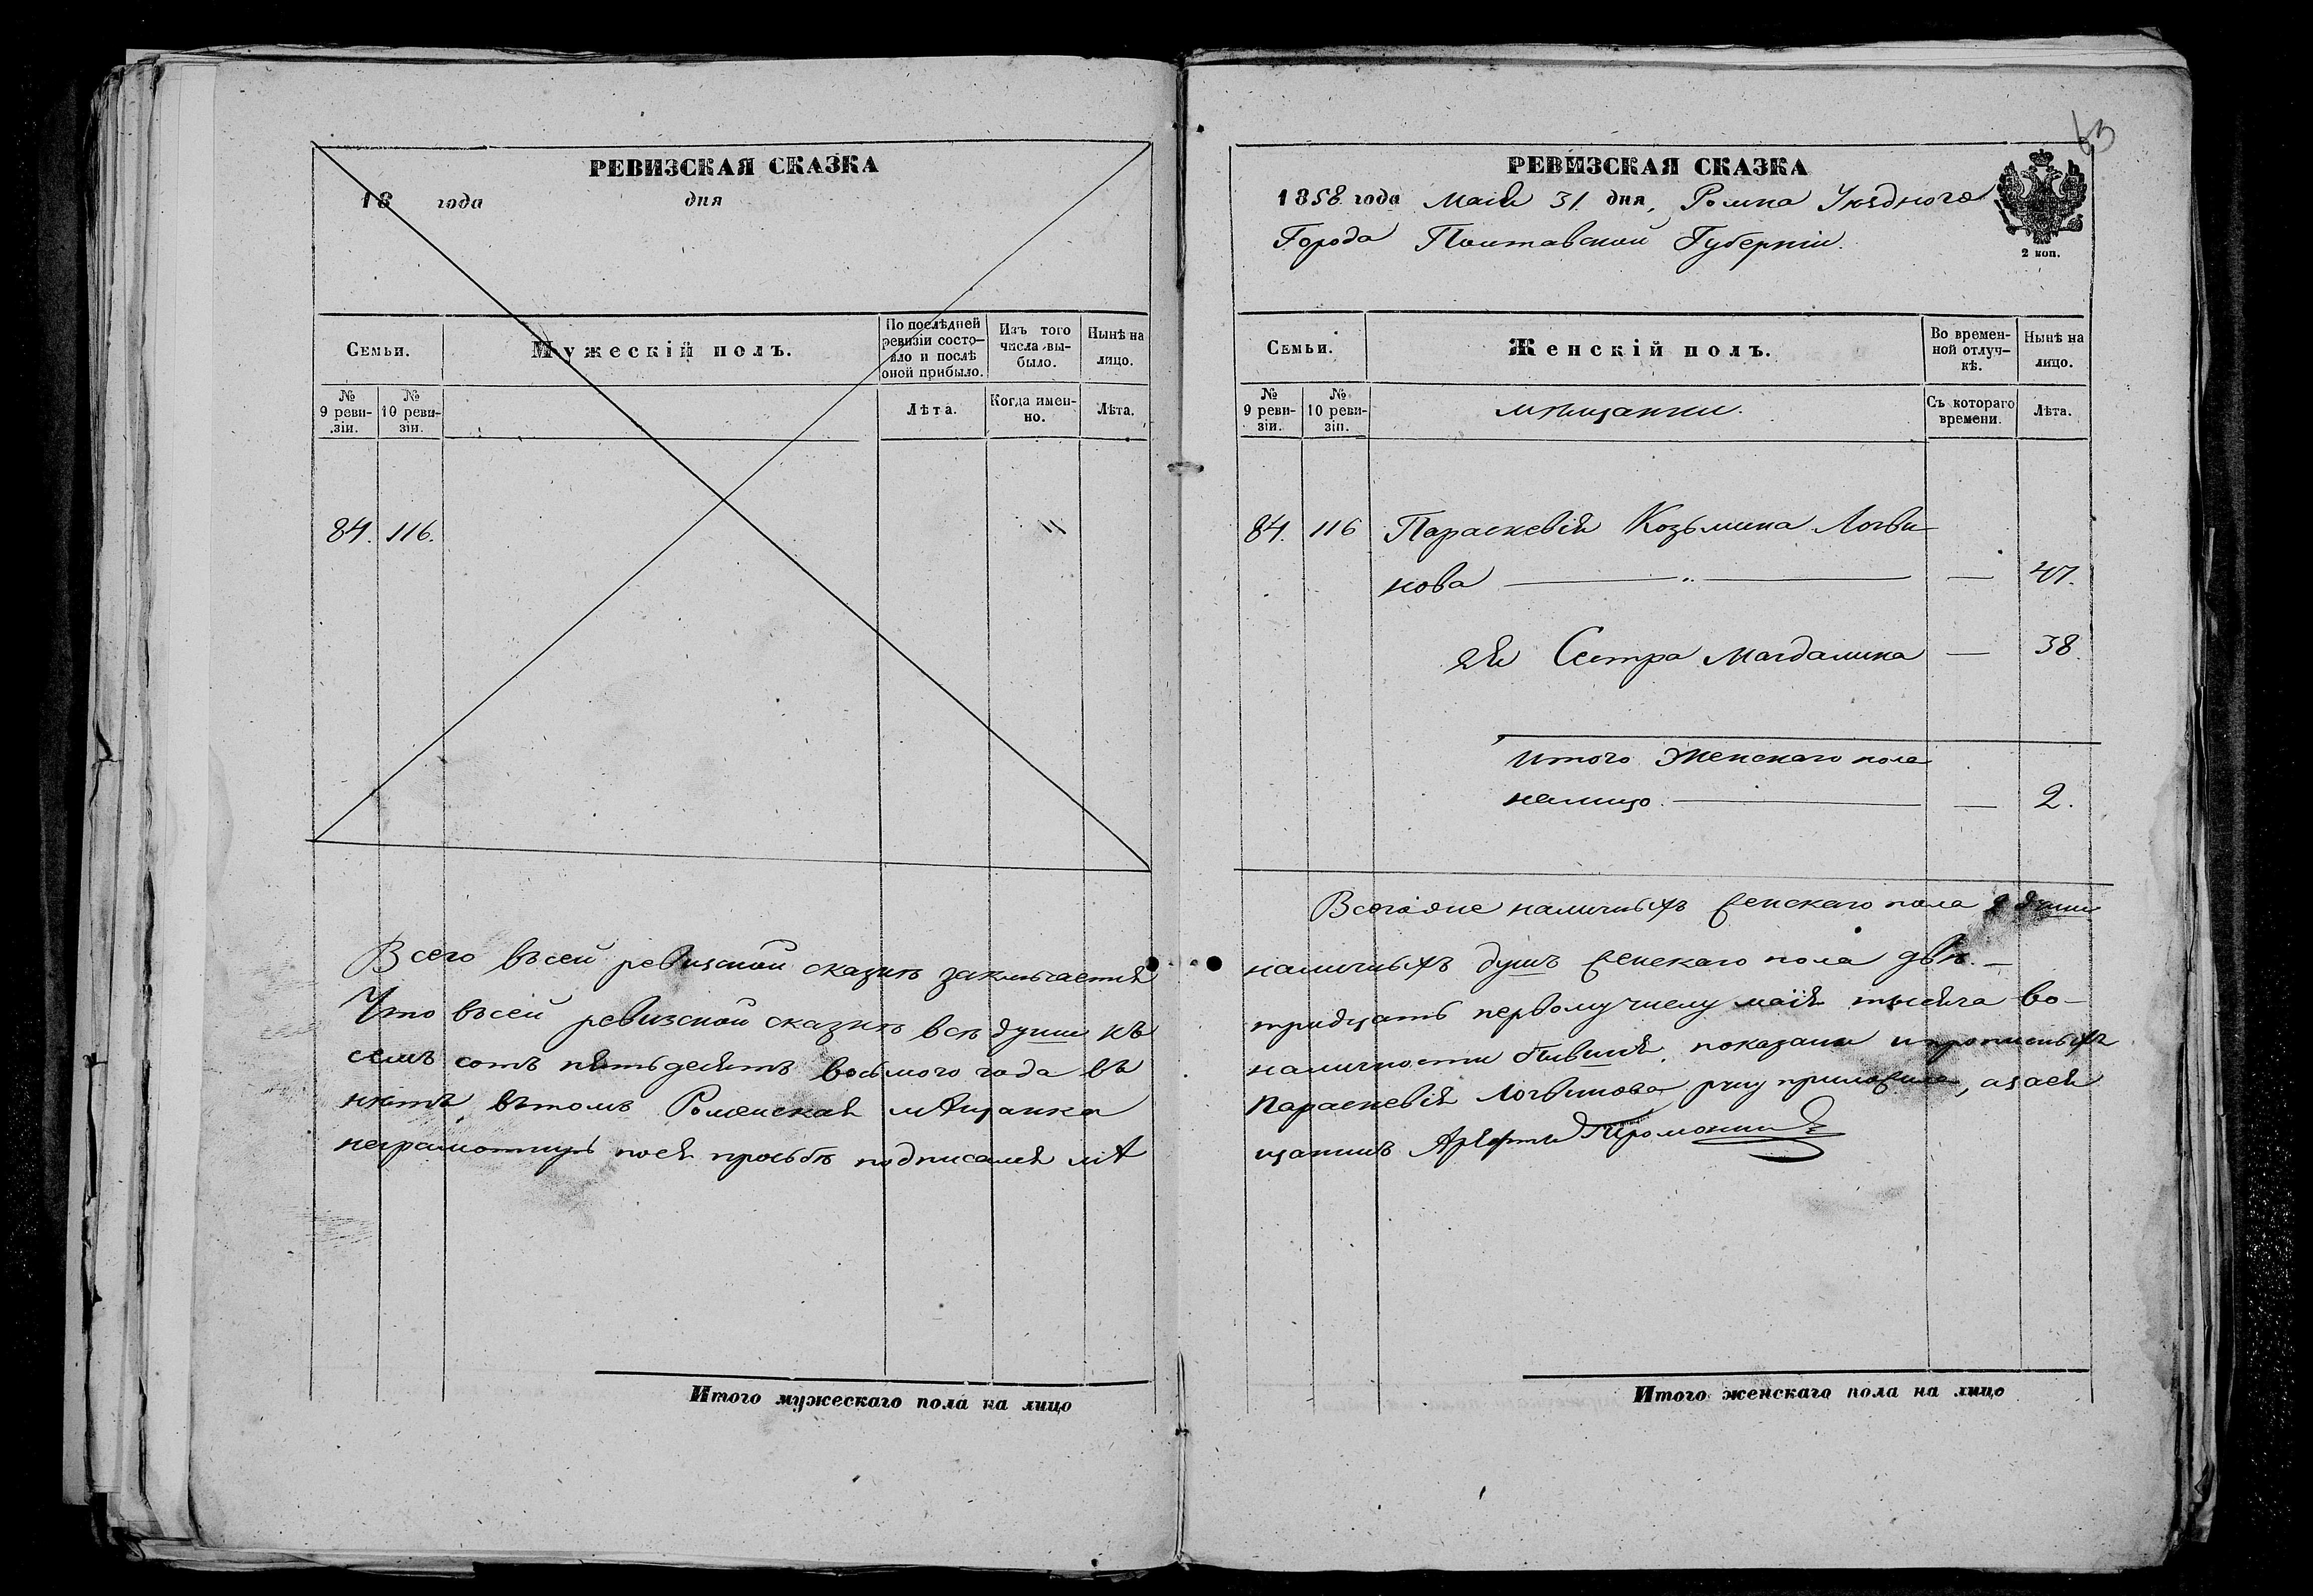 РЕВИЗСКАЯ СКАЗКА
18 года дня
Семьи.
Мужескій полъ.
По послѣдней ревизіи состояло и послѣ оной прибыло.
Изъ того числа выбыло.
Нынѣ на лицо.
№ 9 ревизіи.
№ 10 ревизіи.
Лѣта.
Когда именно.
Лѣта.
84. 116.
Всего въсей ревизской сказкѣ заключается
Что въсей ревизской сказкѣ всѣ души къ
семъ сотъ пятьдесятъ восьмого года въ
нѣтъ, вътомъ Роменская мѣщанка
неграмотную поея просьбѣ подписался мѣ
Итого мужескаго пола на лицо
63
РЕВИЗСКАЯ СКАЗКА
1858 года Мая 31 дня, Ромна Уѣзднаго
Города Полтавской Губерніи.
2 коп.
Семьи.
Женскій полъ.
Во временной отлучкѣ.
Нынѣ на лицо.
№ 9 ревизіи.
№ 10 ревизіи.
мѣщанки.
Съ котораго времени.
Лѣта.
84. 116 Параскевія Козьмина Логви
нова — „ — — 47.
ея Сестра Магдалина — 38.
Итого Женскаго пола
налицо. — — 2.
наличныхъ женскаго пола 2 души
наличныхъ душъ женскаго пола двѣ. —
тридцать первому числу маія тысяча во-
наличности бывшія, показаны
Параскевія Логвинова руку приложила,азаея
щанинъ
Итого женскаго пола на лицо